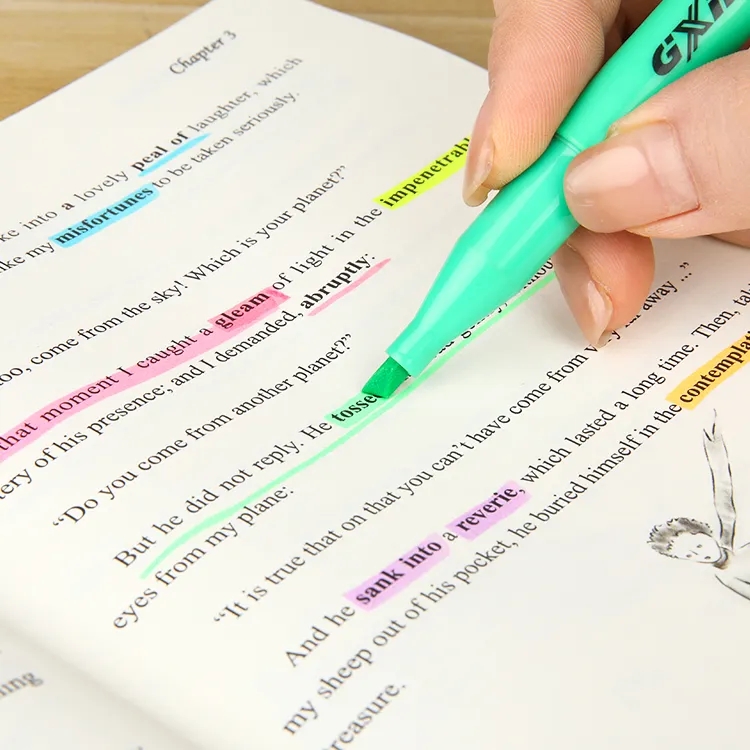 GXI
Chapter 3
ke into a lovely peal of laughter, which
ike my misfortunes to be taken seriously.
oo, come from the sky! Which is your planet?"
that moment I caught a gleam of light in the impenetrabl
tery of his presence; and I demanded, abruptly:
"Do you come from another planet?"
But he did not reply. He tosse
eyes from my plane:
"It is true that on that you can't have come from away ..."
And he sank into a reverie, which lasted a long time. Then, tak
my sheep out of his pocket, he buried himself in the contemplat
reasure.